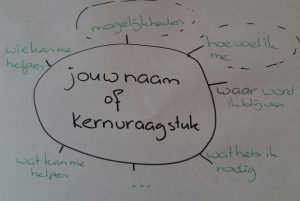 mogelijkheden
wie kan me
helpen
hoe voel ik
me
jouw naam
of
kernvraagstuk
waar word
ik blij van
wat heb ik
nodig
wat kan me
helpen
...